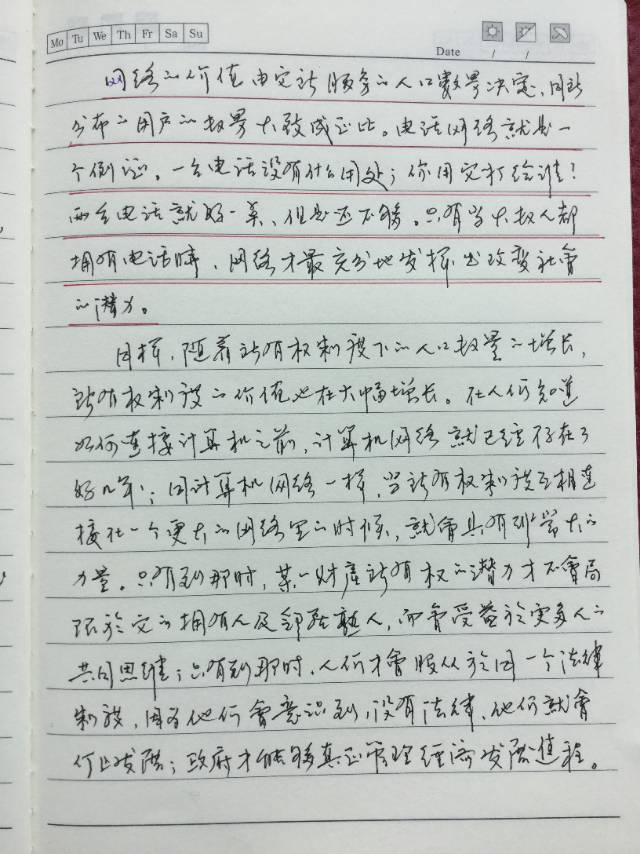 Mo Tu We Th Fr Sa Su
Date / /
网络的价值由它所服务的人口数量决定，同所
分布的用户的数量大致成正比。电话网络就是一
个例证。一台电话没有什么用处；你用它打给谁！
两台电话就好一点、但是还不够。只有当大数人都
拥有电话時、网络才最充分地发挥出改变社會
的潜力。
同样，随着所有权制度下的人口数量的增长，
所有权制度的价值也在大幅增长。在人们知道
如何连接计算机之前，计算机网络就已经存在了
好几年；同计算机网络一样，当所有权制度互相连
接在一个更大的网络里的时候，就會具有非常大的
力量。只有到那时，某一财产所有权的潜力才不會局
限於它的拥有人及邻熟人，而會受益於更多人的
共同思维；只有到那时，人们才會服从於同一个法律
制度，因为他们會意识到，没有法律，他们就會
停止发展；政府才能够真正管理经济发展進程。